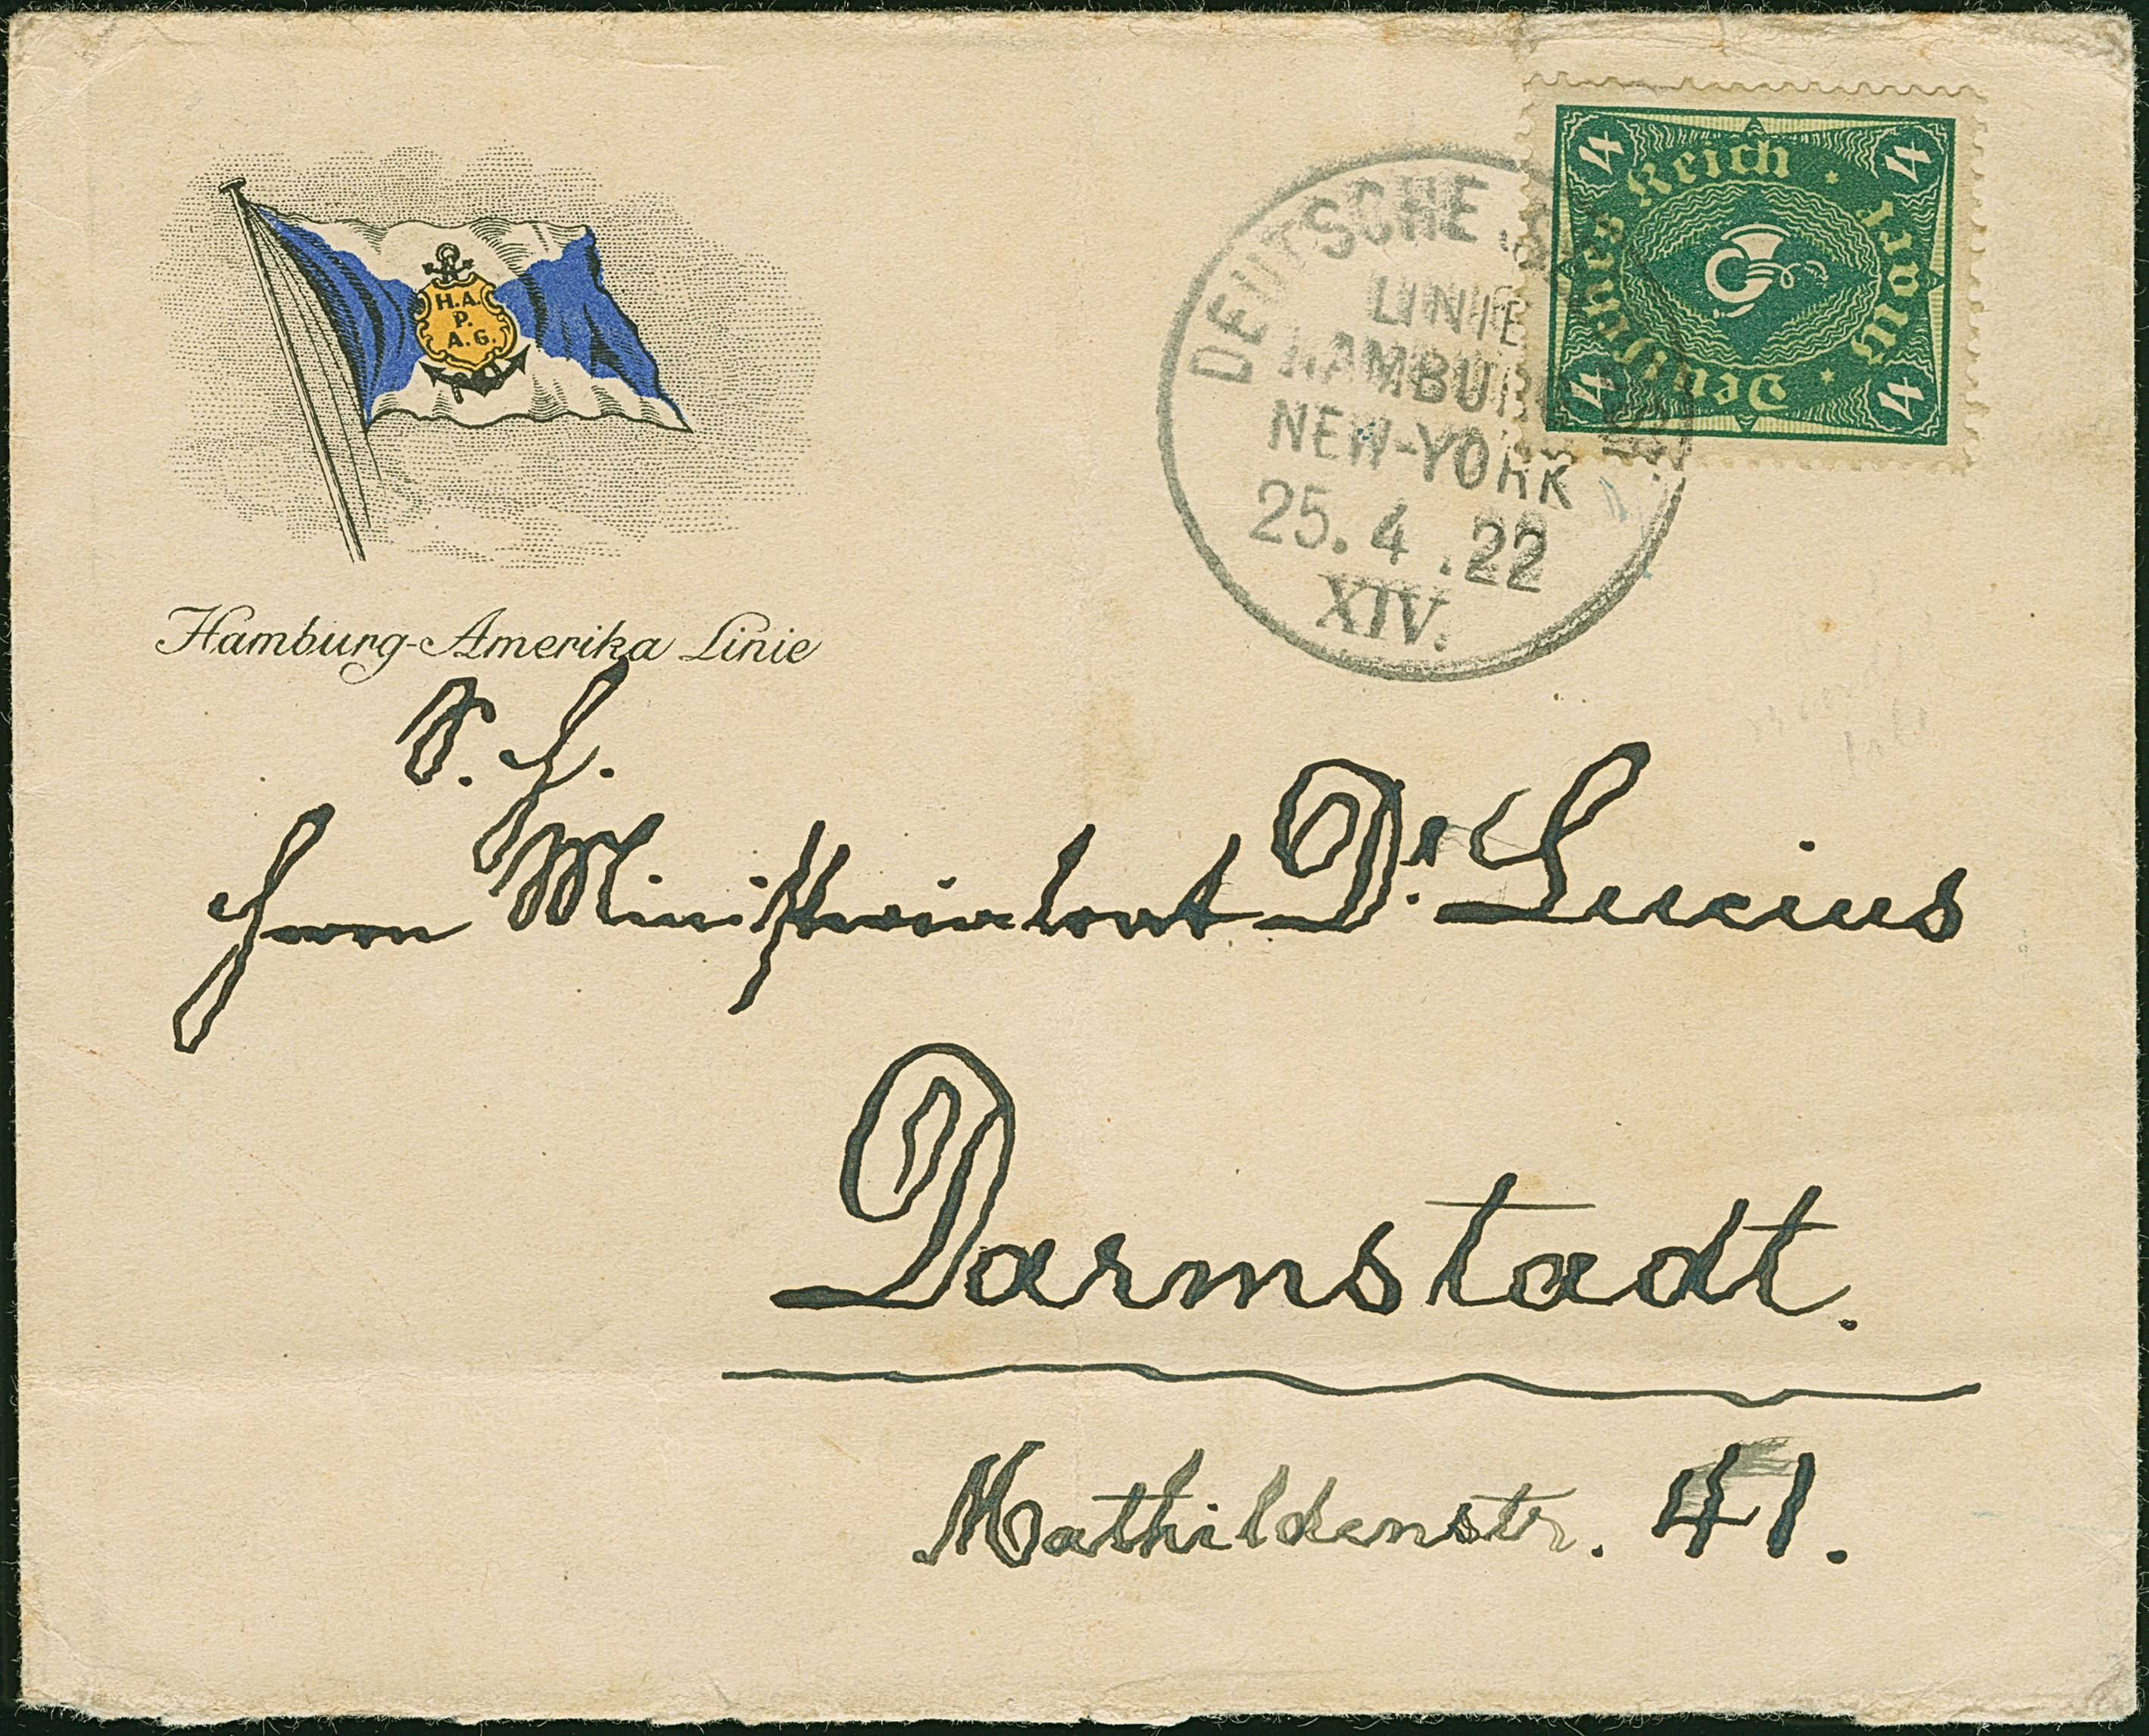 H.A.
P.
A.G.
Hamburg-Amerika Linie
DEUTSCHE
LINIE
HAMBURG
NEW-YORK
25.4.22
XIV.
4 4
Deutsches Reich
4 Mark
4 4
S. H.
Herrn Ministerialrat Dr. Lucius
Darmstadt.
Mathildenstr. 41.